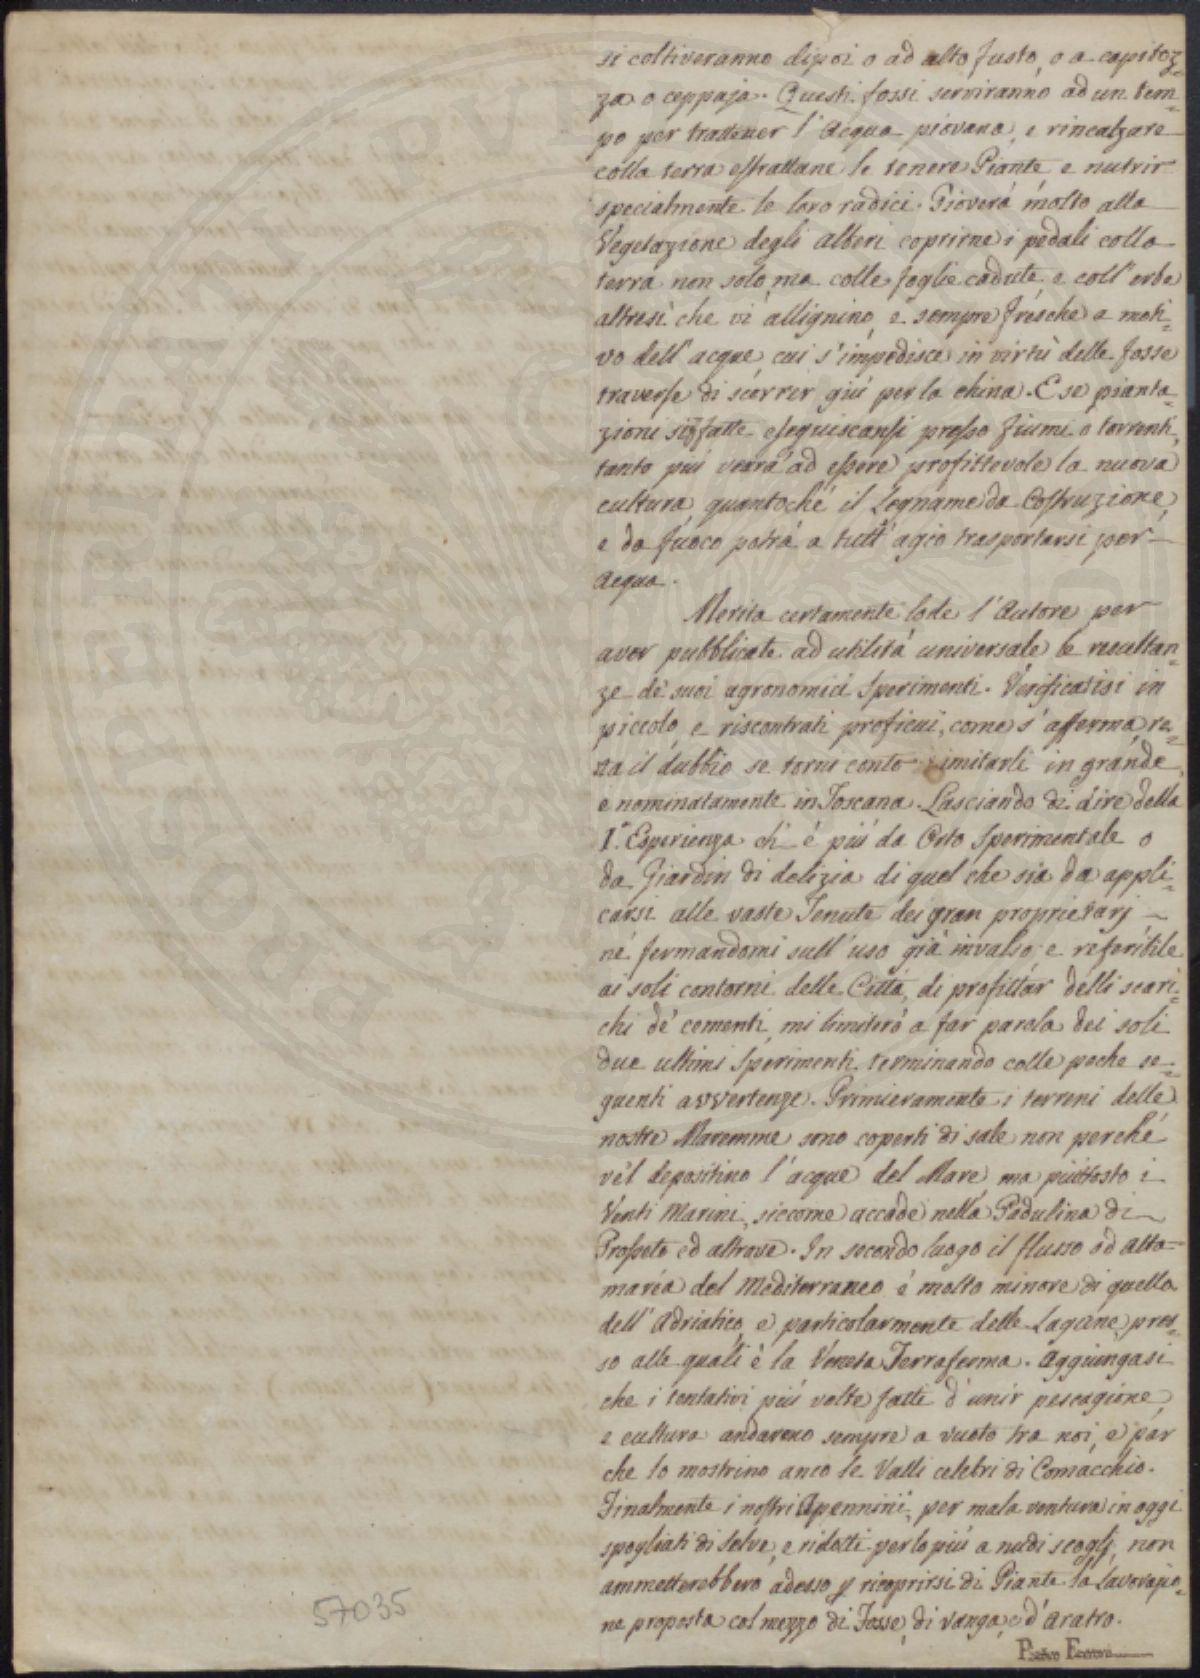 si coltiveranno dipoi o ad alto fusto, o a capitoz=
za o ceppaja. Questi fossi serviranno ad un tem=
po per trattener l'Acqua piovana, e rincalzare
colla terra estrattane le tenere Piante e nutrir
specialmente le loro radici. Gioverà molto alla
Vegetazione degli Alberi coprirne i pedali colla
terra non solo, ma colle foglie cadute, e coll'erbe
altresì che vi allignino, e sempre fresche a moti=
vo dell'acque, cui s'impedisce in virtù delle fosse
traverse di scorrer giù per la china. E se pianta=
zioni siffatte eseguiscansi presso Fiumi o torrenti,
tanto più verrà ad essere profittevole la nuova
cultura, quantochè il Legname da Costruzione,
e da fuoco potrà a tutt'agio trasportarsi per
Acqua.
Merita certamente lode l'Autore per
aver pubblicate ad utilità universale le resultan=
ze de' suoi agronomici Sperimenti. Verificatisi in
piccolo, e riscontrati proficui, come s'afferma, re=
sta il dubbio se torni conto imitarli in grande,
e nominatamente in Toscana. Lasciando di dire della
I.ª Esperienza ch'è più da Orto Sperimentale o
da Giardin di delizia di quel che sia da appli=
carsi alle vaste Tenute dei gran proprietarj
nè fermandomi sull'uso già invalso, e referibile
ai soli contorni delle Città, di profittar delli scari=
chi de' cementi, mi limiterò a far parola dei soli
due ultimi Sperimenti, terminando colle poche se=
guenti avvertenze. Primieramente i terreni delle
nostre Maremme sono coperti di sale non perchè
vel depositino l'acque del Mare, ma piuttosto i
Venti Marini, siccome accade nella Padulina di
Grosseto ed altrove. In secondo luogo il flusso od alta
marèa del Mediterraneo è molto minore di quella
dell'Adriatico, e particolarmente delle Lagune, pres=
so alle quali è la Veneta Terraferma. Aggiungasi
che i tentativi più volte fatti d'unir pescagione,
e cultura andarono sempre a vuoto tra noi, e par
che lo mostrino anco le Valli celebri di Comacchio.
Finalmente i nostri Apennini, per mala ventura in oggi
spogliati di Selve, e ridotti per lo più a nudi scogli, non
ammetterebbero adesso p ricoprirsi di Piante la lavorazio=
ne proposta col mezzo di Fosse, di vanga, e d'Aratro.
57035